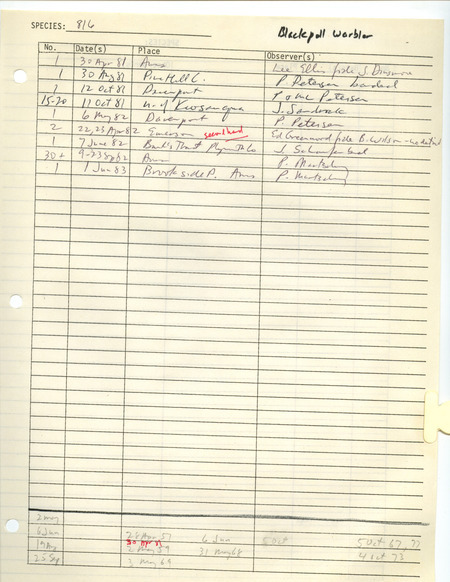 SPECIES: 816 Blackpoll Warbler
No. Date(s) Place Observer(s)
1 30 Apr 81 Ames Lee Ellis fide J. Dinsmore
1 30 Aug 81 Pine Hill C. P. Petersen banded
1 12 Oct 81 Davenport P. & M. Petersen
15-20 11 Oct 81 n. of Keosauqua J. Sandrock
1 6 May 82 Davenport P. Petersen
2 22, 23 Apr 82 Emerson Ed Greenwood fide B. Wilson - no details
1 7 June 82 Plymouth Co J.
30+ 9-23 82 Ames P. Martsching
1 1 Jun 83 Brookside P. Ames P. Martsching
2 may
6 Jun 28 Apr 57 6 Jun 5 Oct 5 Oct 67, 77
19 Aug 30 Apr 81 31 May 68 4 oct 73
25 Sep 2 May 59
3 may 69